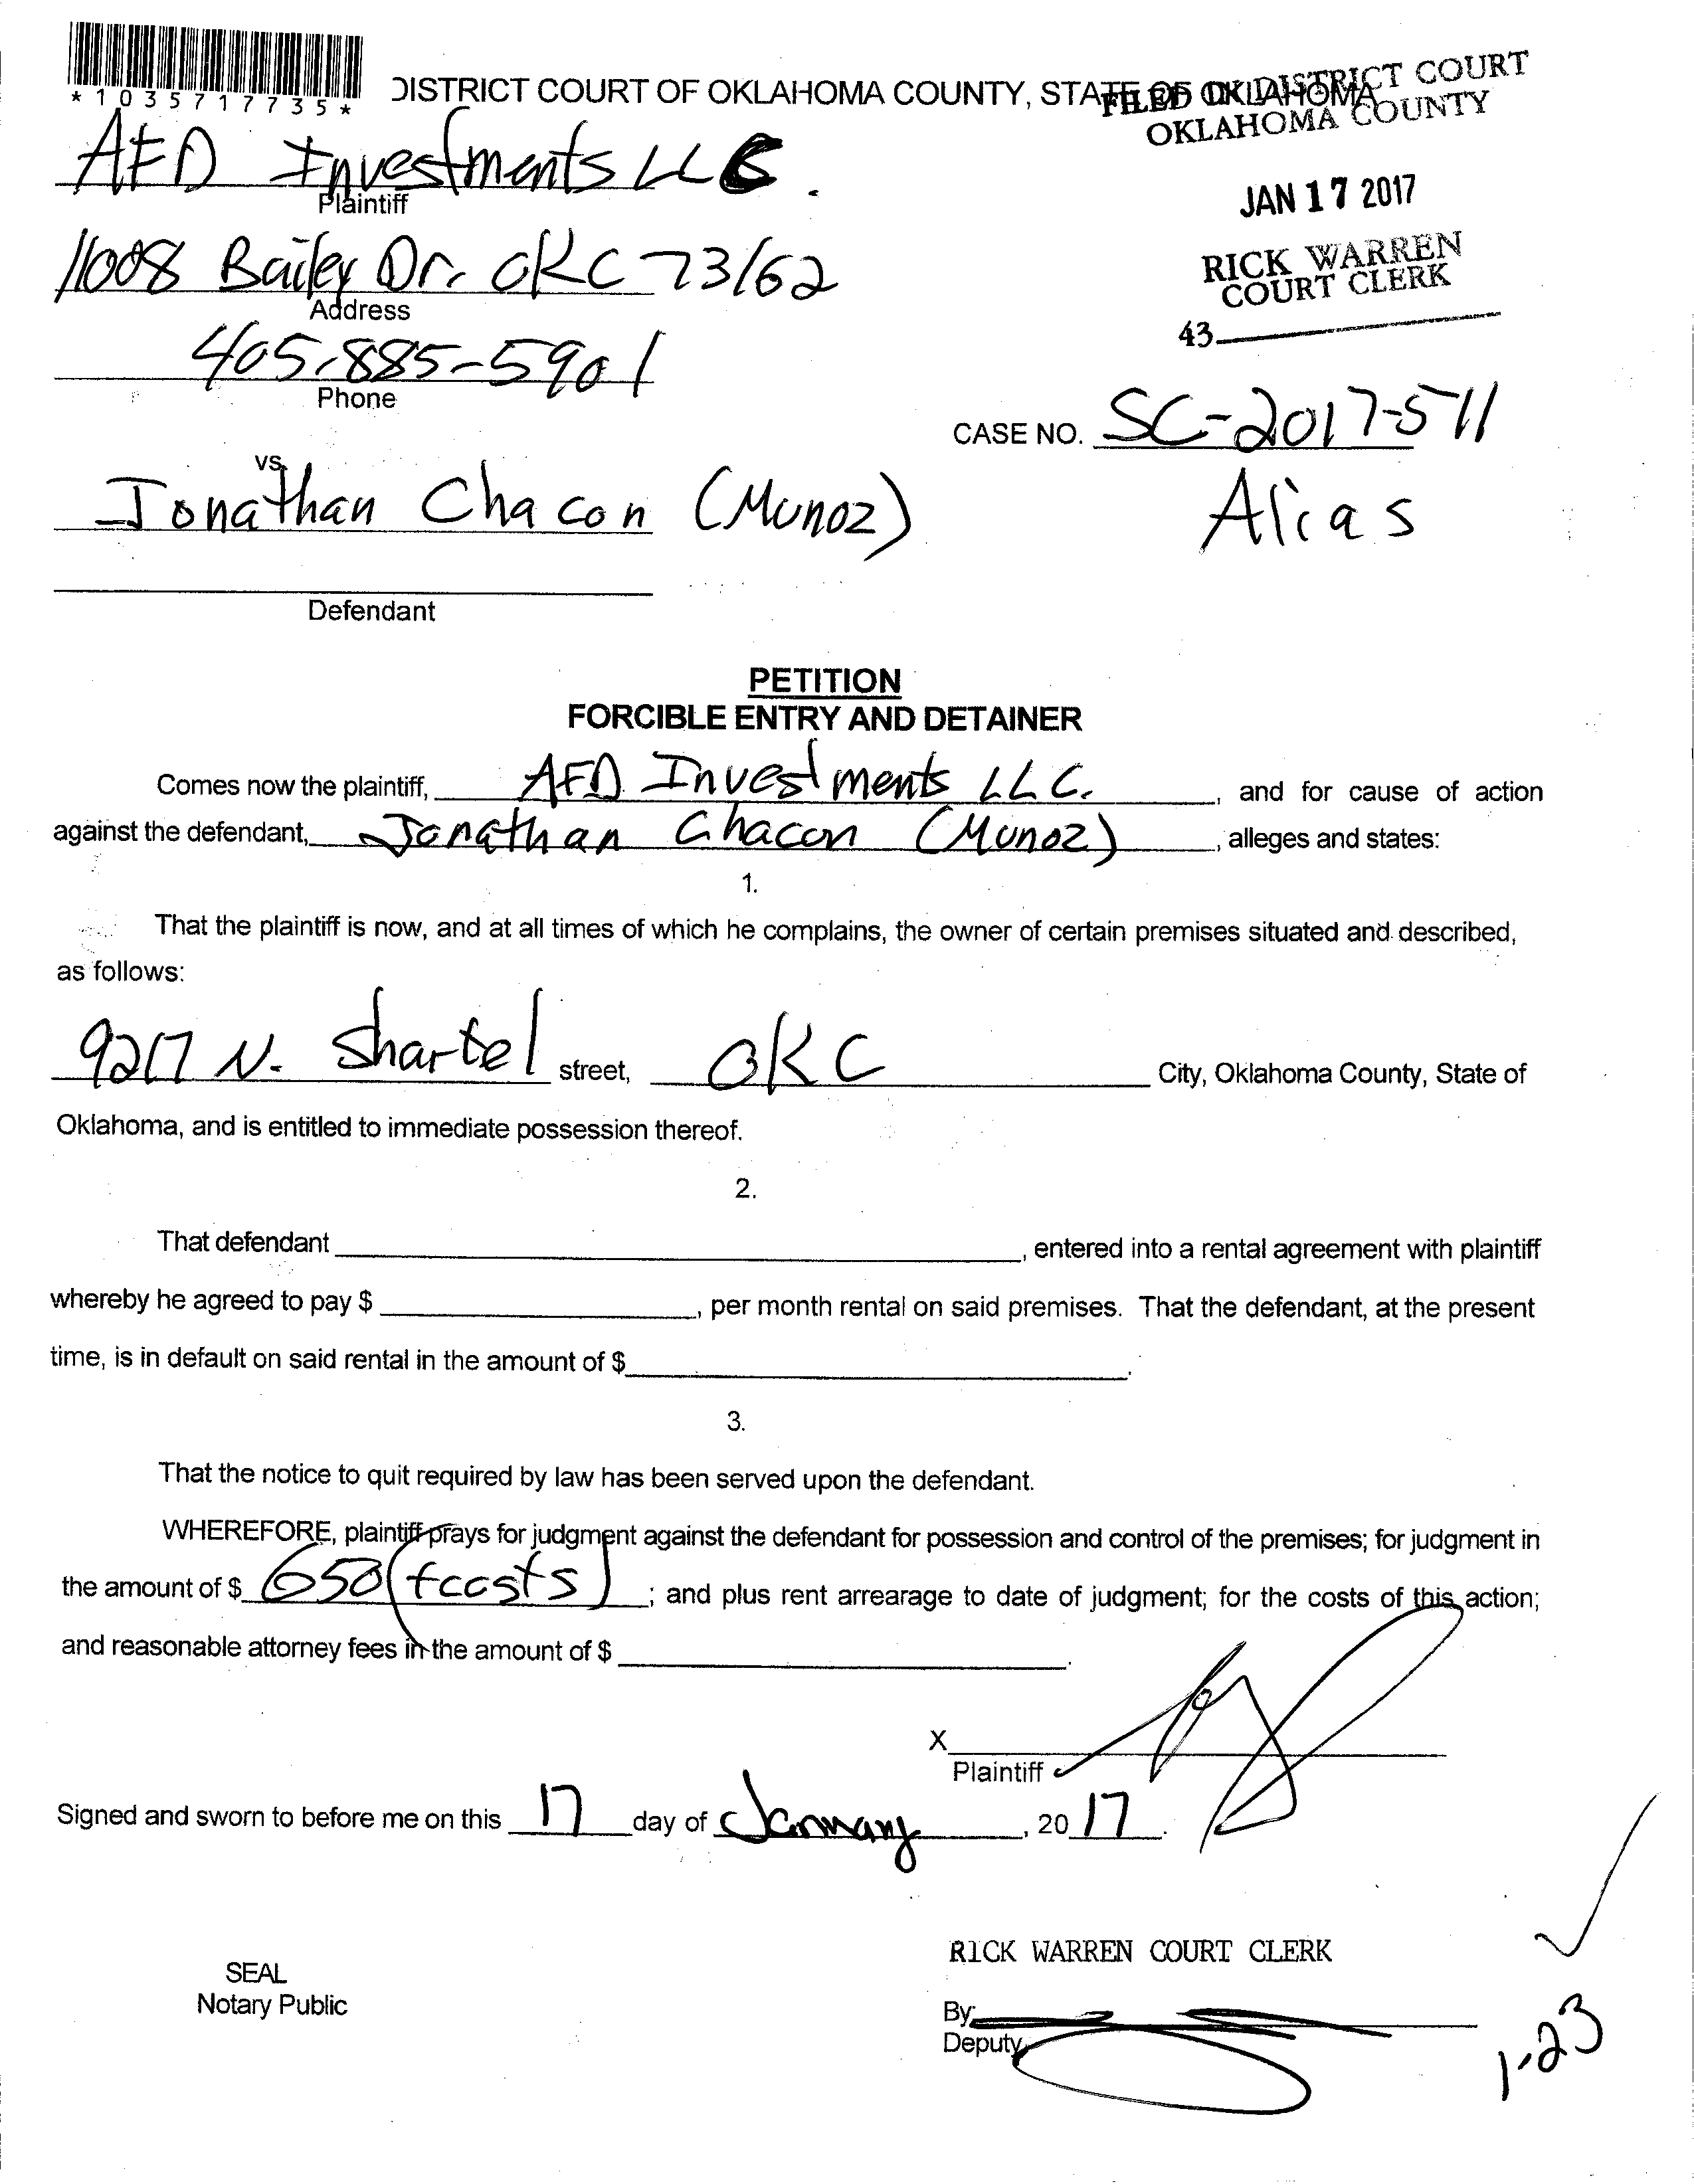 *1035717735*
DISTRICT COURT OF OKLAHOMA COUNTY, STATE OF OKLAHOMA
FILED IN DISTRICT COURT
OKLAHOMA COUNTY
JAN 17 2017
RICK WARREN
COURT CLERK
43
AFD Investments LLC.
Plaintiff
11008 Bailey Dr. OKC 73162
Address
405-885-5901
Phone
CASE NO. SC-2017-511
Alias
vs.
Jonathan Chacon (Munoz)
Defendant
PETITION
FORCIBLE ENTRY AND DETAINER
Comes now the plaintiff, AFD Investments LLC. , and for cause of action
against the defendant, Jonathan Chacon (Munoz) , alleges and states:
1.
That the plaintiff is now, and at all times of which he complains, the owner of certain premises situated and described,
as follows:
9217 N. Shartel street, OKC City, Oklahoma County, State of
Oklahoma, and is entitled to immediate possession thereof.
2.
That defendant , entered into a rental agreement with plaintiff
whereby he agreed to pay $ , per month rental on said premises. That the defendant, at the present
time, is in default on said rental in the amount of $ .
3.
That the notice to quit required by law has been served upon the defendant.
WHEREFORE, plaintiff prays for judgment against the defendant for possession and control of the premises; for judgment in
the amount of $ 650 (+costs) ; and plus rent arrearage to date of judgment; for the costs of this action;
and reasonable attorney fees in the amount of $ .
X
Plaintiff
Signed and sworn to before me on this 17 day of January , 20 17 .
RICK WARREN COURT CLERK
SEAL
Notary Public
By:
Deputy
1-23